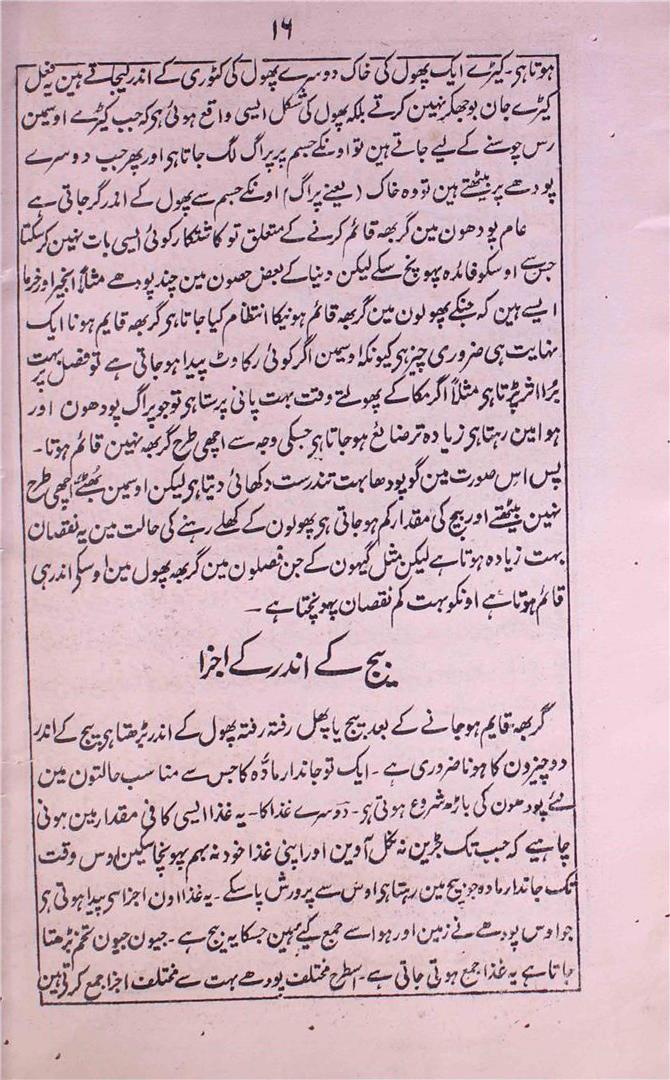 ۱۶
ہوتا ہی۔ کیڑے ایک پھول کی خاک دوسرے پھول کی کٹوری کے اندر لیجاتے ہین یہ فعل
کیڑے جان بوجھکر نہین کرتے بلکہ پھول کی شکل ایسی واقع ہوئی ہی کہ جب کیڑے اوسمین
رس چوسنے کے لیے جاتے ہین تو اونکے جسم پر پراگ لگ جاتا ہی اور پھر جب دوسرے
پودھے پر بیٹھتے ہین تو وہ خاک (یعنے پراگ) اونکے جسم سے پھول کے اندر گر جاتی ہے
عام پودھون مین گربھہ قائم کرنے کے متعلق تو کاشتکار کوئی ایسی بات نہین کر سکتا
جس سے اوسکو فائدہ پہونچ سکے لیکن دنیا کے بعض حصون مین چند پودھے مثلاً انجیر اور خرما
ایسے ہین کہ جنکے پھولون مین گربھہ قائم ہونیکا انتظام کیا جاتا ہی گربھہ قایم ہونا ایک
نہایت ہی ضروری چیز ہی کیونکہ اوسمین اگر کوئی رکاوٹ پیدا ہو جاتی ہے تو فصل پر بہت
بڑا اثر پڑتا ہی مثلاً اگر مکا کے پھولتے وقت بہت پانی برستا ہی تو جو پراگ پودھون اور
ہوا مین رہتا ہی زیادہ تر ضائع ہو جاتا ہی جسکی وجہ سے اچھی طرح گربھہ نہین قائم ہوتا۔
پس اس صورت مین گو پودھا بہت تندرست دکھائی دیتا ہی لیکن اوسمین بھٹے اچھی طرح
نہین بیٹھتے اور بیج کی مقدار کم ہو جاتی ہی پھولون کے کھلے رہنے کی حالت مین یہ نقصان
بہت زیادہ ہوتا ہے لیکن مثل گیہون کے جن فصلون مین گربھہ پھول مین اوسکے اندر ہی
قائم ہوتا ہے اونکو بہت کم نقصان پہونچتا ہے ۔
بیج کے اندر کے اجزا
گربھہ قایم ہو جانے کے بعد بیج یا پھل رفتہ رفتہ پھول کے اندر بڑھتا ہی بیج کے اندر
دو چیزون کا ہونا ضروری ہے ۔ ایک تو جاندار مادّہ کا جس سے مناسب حالتون مین
نئے پودھون کی باڑھ شروع ہوتی ہی۔ دوسرے غذا کا۔ یہ غذا ایسی کافی مقدار مین ہونی
چاہیے کہ جب تک جڑین نہ نکل آوین اور اپنی غذا خود نہ بہم پہونچا سکین اوس وقت
تک جاندار مادہ جو بیج مین رہتا ہی اوس سے پرورش پا سکے ۔ یہ غذا اون اجزا سی پیدا ہوتی ہی
جو اوس پودھے نے زمین اور ہوا سے جمع کیے ہین جسکا یہ بیج ہے ۔ جیون جیون تخم بڑھتا
جاتا ہے یہ غذا جمع ہوتی جاتی ہے ۔ اسطرح مختلف پودھے بہت سے مختلف اجزا جمع کرتی ہین